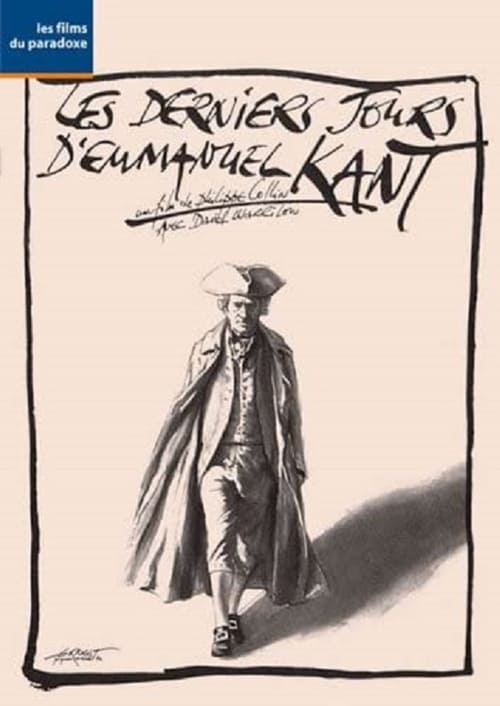 les films
du paradoxe
LES DERNIERS JOURS
D'EMMANUEL KANT
un film de Philippe Collin
Avec David Warrilow